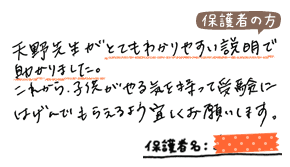 保護者の方
天野先生がとてもわかりやすい説明で
助かりました。
これから、子供がやる気を持って受験に
はげんでもらえるよう宜しくお願いします。
保護者名: